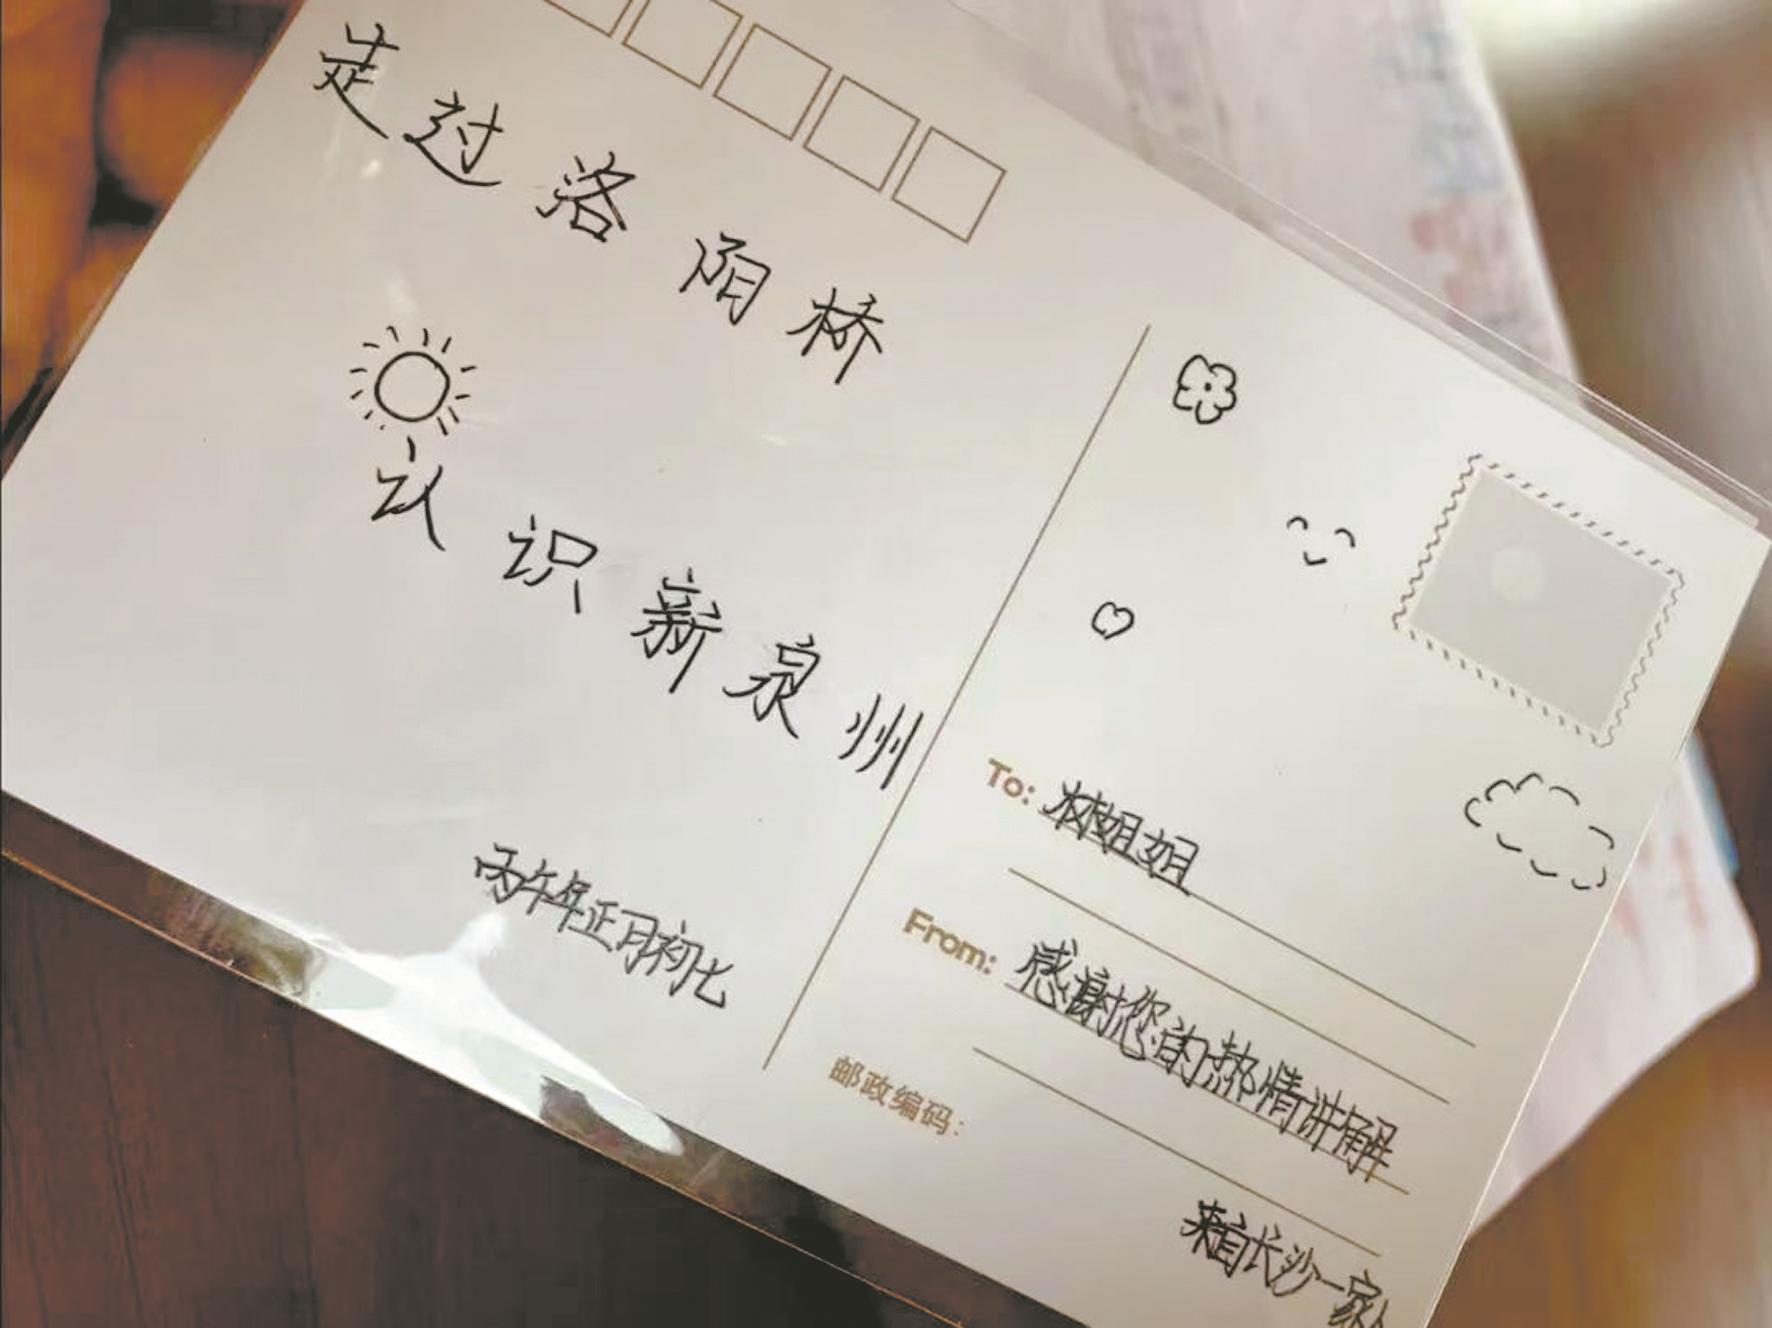 走过洛阳桥
认识新泉州
丙午年正月初七
To: 林姐姐
From: 感谢您的热情讲解
邮政编码:
来自长沙一家人